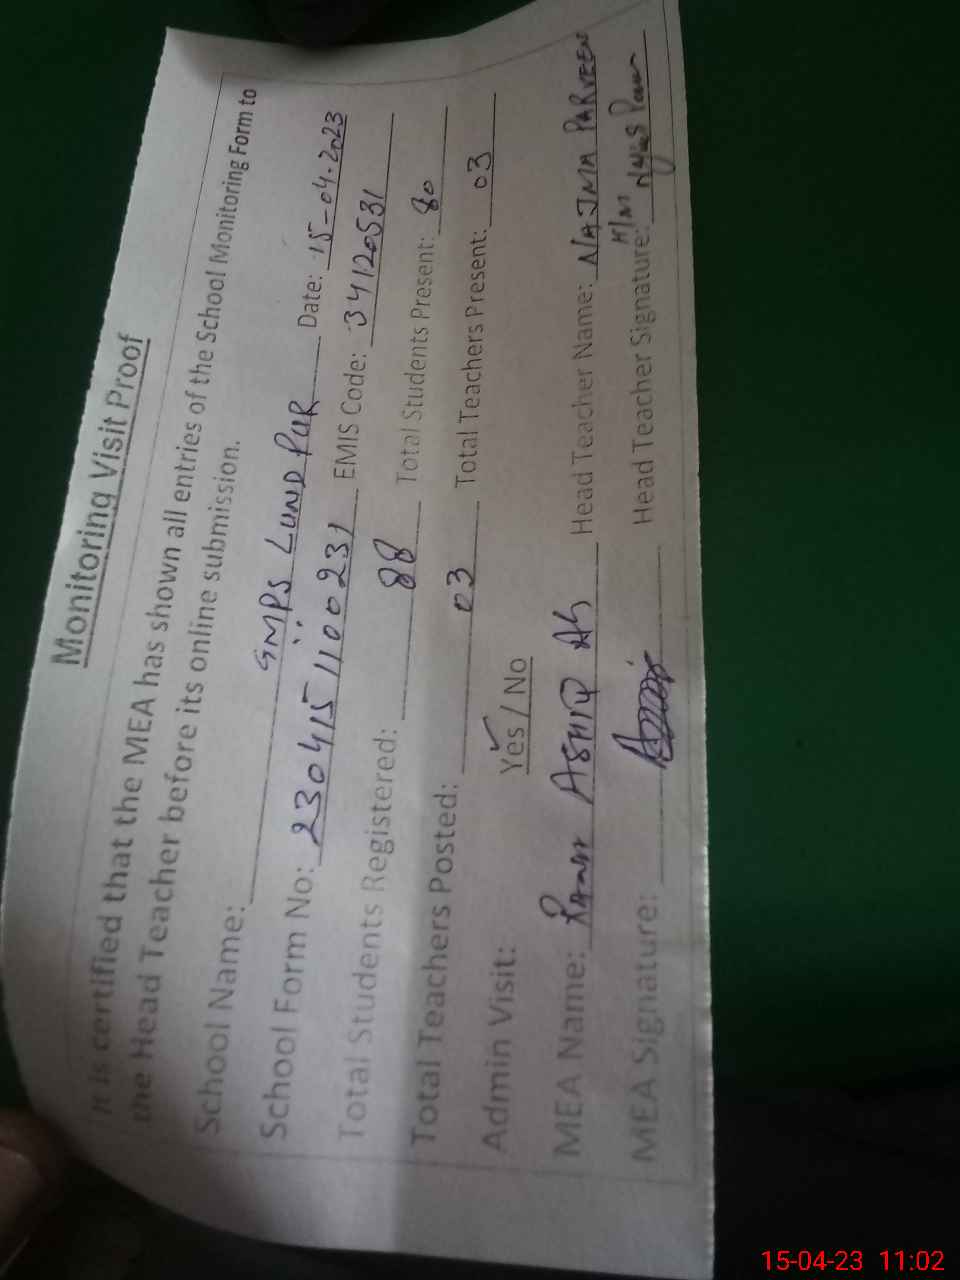 Monitoring Visit Proof
It is certified that the MEA has shown all entries of the School Monitoring Form to
the Head Teacher before its online submission.
School Name: GMPS LUND PUR Date: 15-04-2023
School Form No: 2304151100231 EMIS Code: 34120531
Total Students Registered: 88 Total Students Present: 80
Total Teachers Posted: 03 Total Teachers Present: 03
Admin Visit: Yes / No
MEA Name: ASHIQ Head Teacher Name: NAJMA PARVEEN
MEA Signature: Head Teacher Signature:
15-04-23 11:02